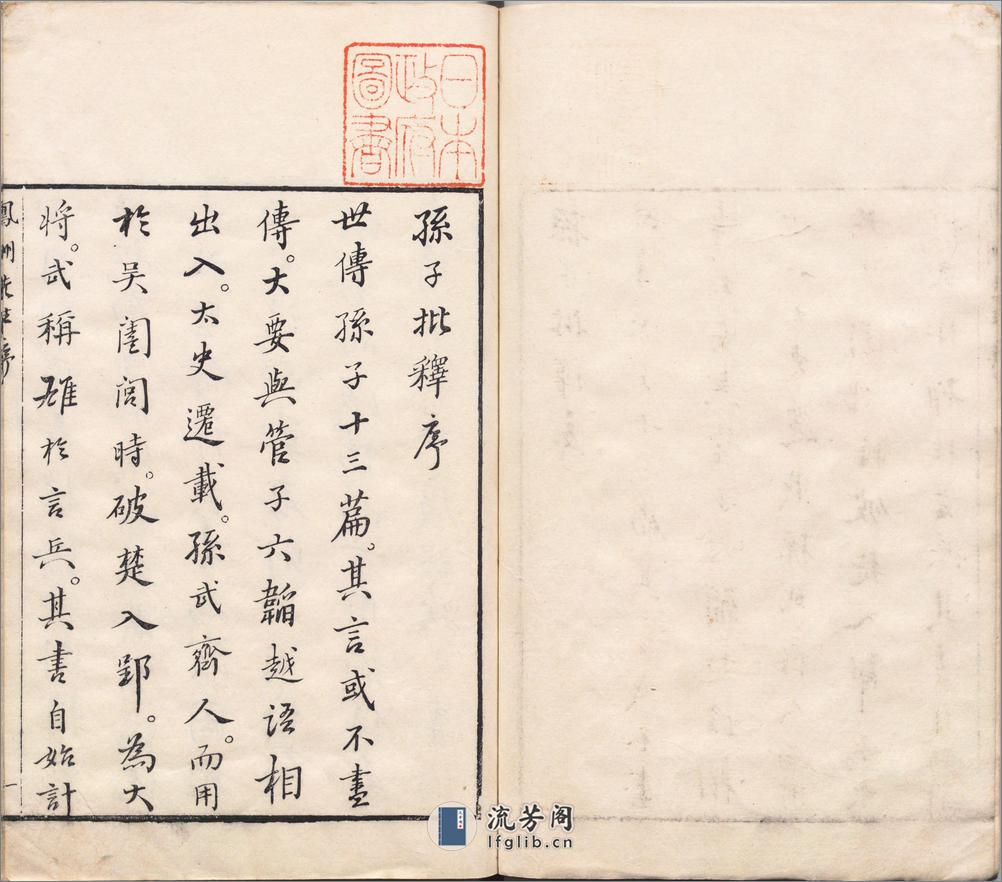 日本
政府
圖書
孫子批釋序
世傳孫子十三篇。其言或不盡
傳。大要與管子六韜越語相
出入。太史遷載。孫武齊人。而用
於吳闔閭時。破楚入郢。為大
將。武稱雄於言兵。其書自始計
鳳州
序
一
流芳阁
lfglib.cn